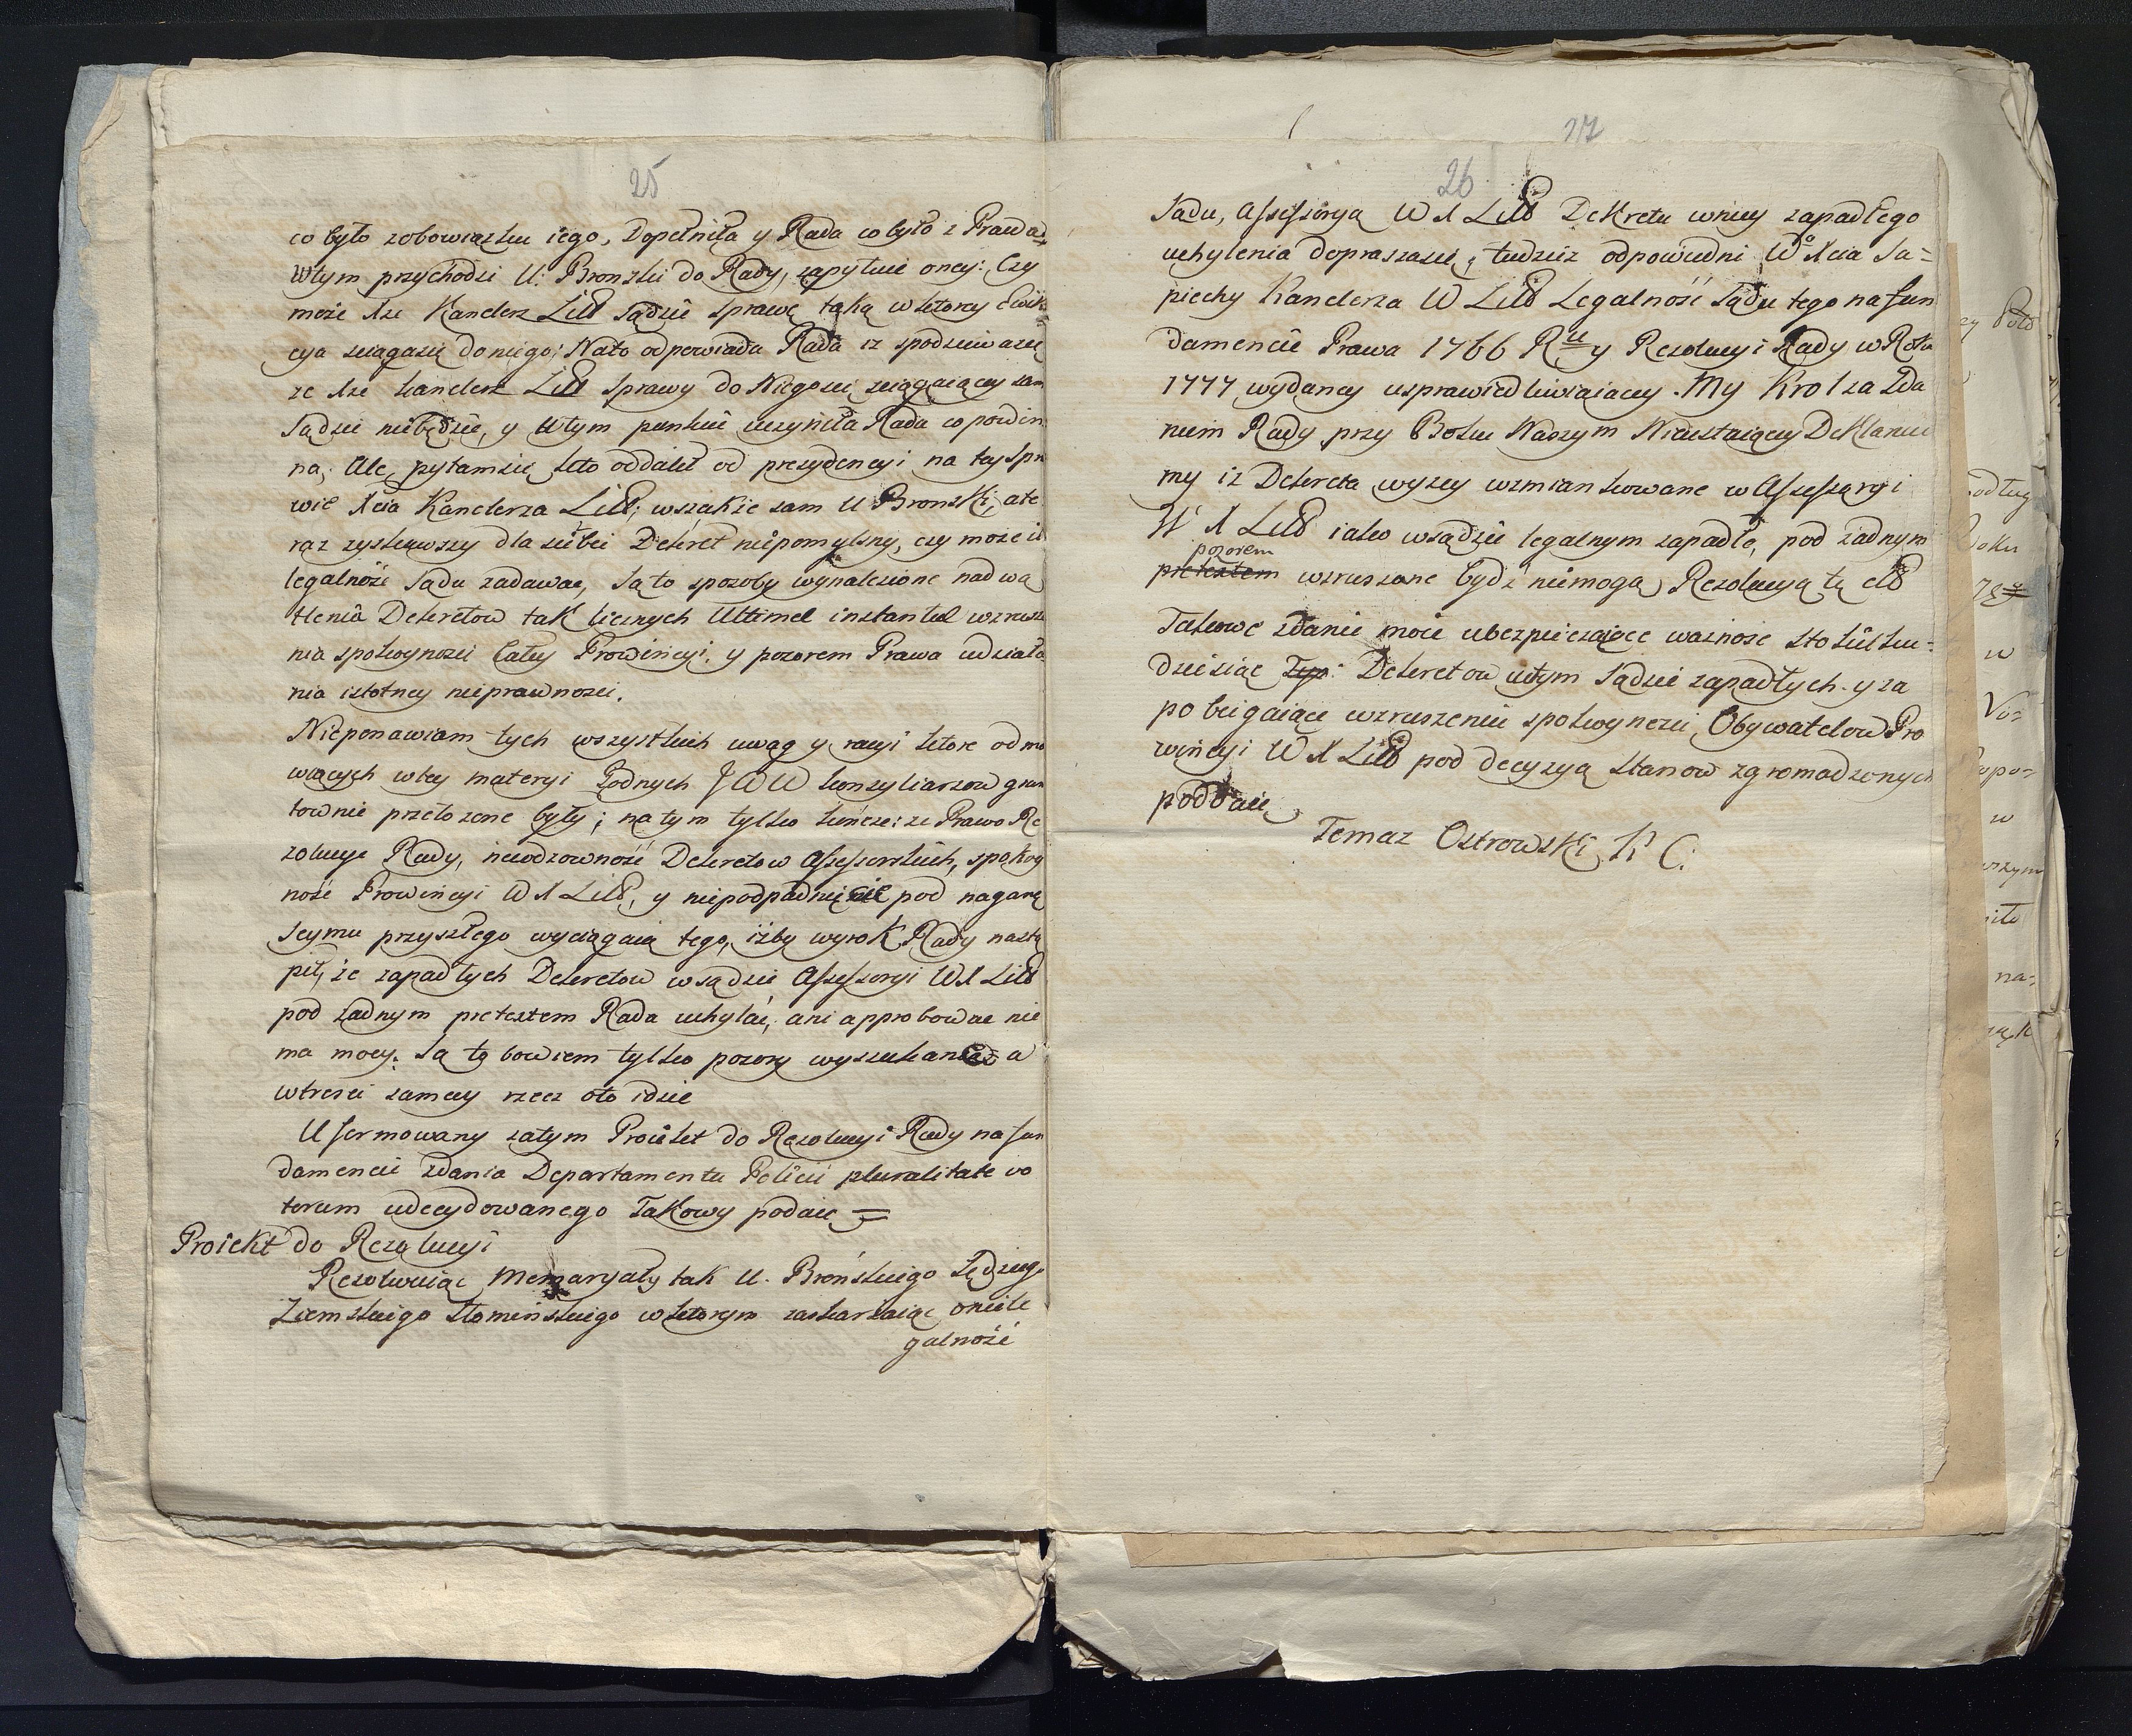 25
co było zobowiązku iego, Dopełniła y Rada co było z Prawa.
Wtym przychodzi U: Bronski do Rady, zapytuie oney: Czy
może Xże Kanclerz Litt Sądzić Sprawę taką w ktorey Ewik
cya sciągasię do niego; Nato odpowiada Rada iż spodziewasię
że Xże kanclerz Litt Sprawy do Niegosci sciągaiącey sam
Sądzić niebędzie, y wtym punkcie uczyniła Rada co powin
na; Ale, pytamsię kto oddalił od prezydencyi na tey Spra
wie Xcia Kanclerza Litt; wszakże sam U Bronski, ate
raz zyskawszy dla siebie Dekret niepomyslny, czy może il
legalność Sądu zadawać, Są to sposoby wynalezione nadwą
tlenia Dekretow tak licznych Ultimæ instantiæ wzrusze
nia spokoynosci Całey Prowincyi, y pozorem Prawa udziała
nia istotney nieprawnosci.
Nieponawiam tych wszystkich uwag y racyi ktore od mo
wiących wtey materyi Godnych JWW konsyliarzow grun
townie przełożone były; na tym tylko kończe: że Prawo Re
zolucye Rady, nieodzowność Dekretow Assessorskich, spokoy
ność Prowincyi W X Litt, y niepodpadnięcie pod naganę
Seymu przyszłego wyciągaią tego, iżby wyrok Rady nastą
pił, że zapadłych Dekretow wsądzie Assessoryi WX Litt
pod żadnym pretextem Rada uchylać, ani approbować nie
ma mocy. Są to bowiem tylko pozory wyszukania a
wtresci samey rzecz oto idzie
Uformowany zatym Proiekt do Rezolucyi Rady na fun
damencie zdania Departamentu Policii pluralitate vo
torum udecydowanego Takowy podaię =
Proiekt do Rezolucyi
Rezolwuiąc Memoryały tak U. Brońskiego Sędziego
Ziemskiego Słonimskiego w ktorym zaskarżaiąc onielle
galność
27
26
Sadu, Assessoryą W X Litt Dekretu wniey zapadłego
uchylenia dopraszasię, tudzież odpowiedni Wo Xcia Sa=
piechy Kanclerza W Litt Legalność Sądu tego na fun
damencie Prawa 1766 Ru y Rezolucyi Rady w Roku
1777 wydaney usprawiedliwiaiącey. My Krol za Zda
niem Rady przy Boku Naszym Nieustaiącey Deklaruie
my iż Dekreta wyzey wzmiankowane w Assessoryi
W X Litt iako wsądzie legalnym zapadłe, pod żadnym
pozorem
pretextem wzruszone bydź niemogą Rezolucyą tą etc
Takowe zdanie moie ubezpieczaiące ważność Sto kilku=
dziesiąt Dekretow wtym Sądzie zapadłych y za
pobiegaiące wzruszeniu spokoynosci Obywatelow Pro
wincyi W X Litt pod decyzyą Stanow zgromadzonych
poddaię
Tomasz Ostrowski K C.